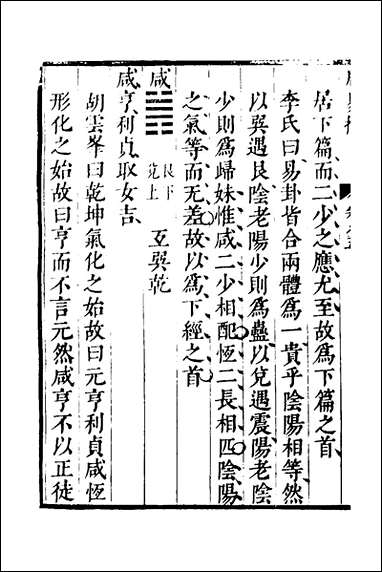 居下篇而二少之應尤至故爲下篇之首
李氏曰易卦皆合兩體爲一貴乎陰陽相等然
以巽遇艮陰老陽少則爲蠱以兌遇震陽老陰
少則爲歸妹惟咸二少相配恆二長相匹陰陽
之氣等而无羞故以爲下經之首
咸 艮下 兌上 互巽乾
咸亨利貞取女吉
胡雲峯曰乾坤氣化之始故曰元亨利貞咸恆
形化之始故曰亨而不言元然咸亨不以正徒